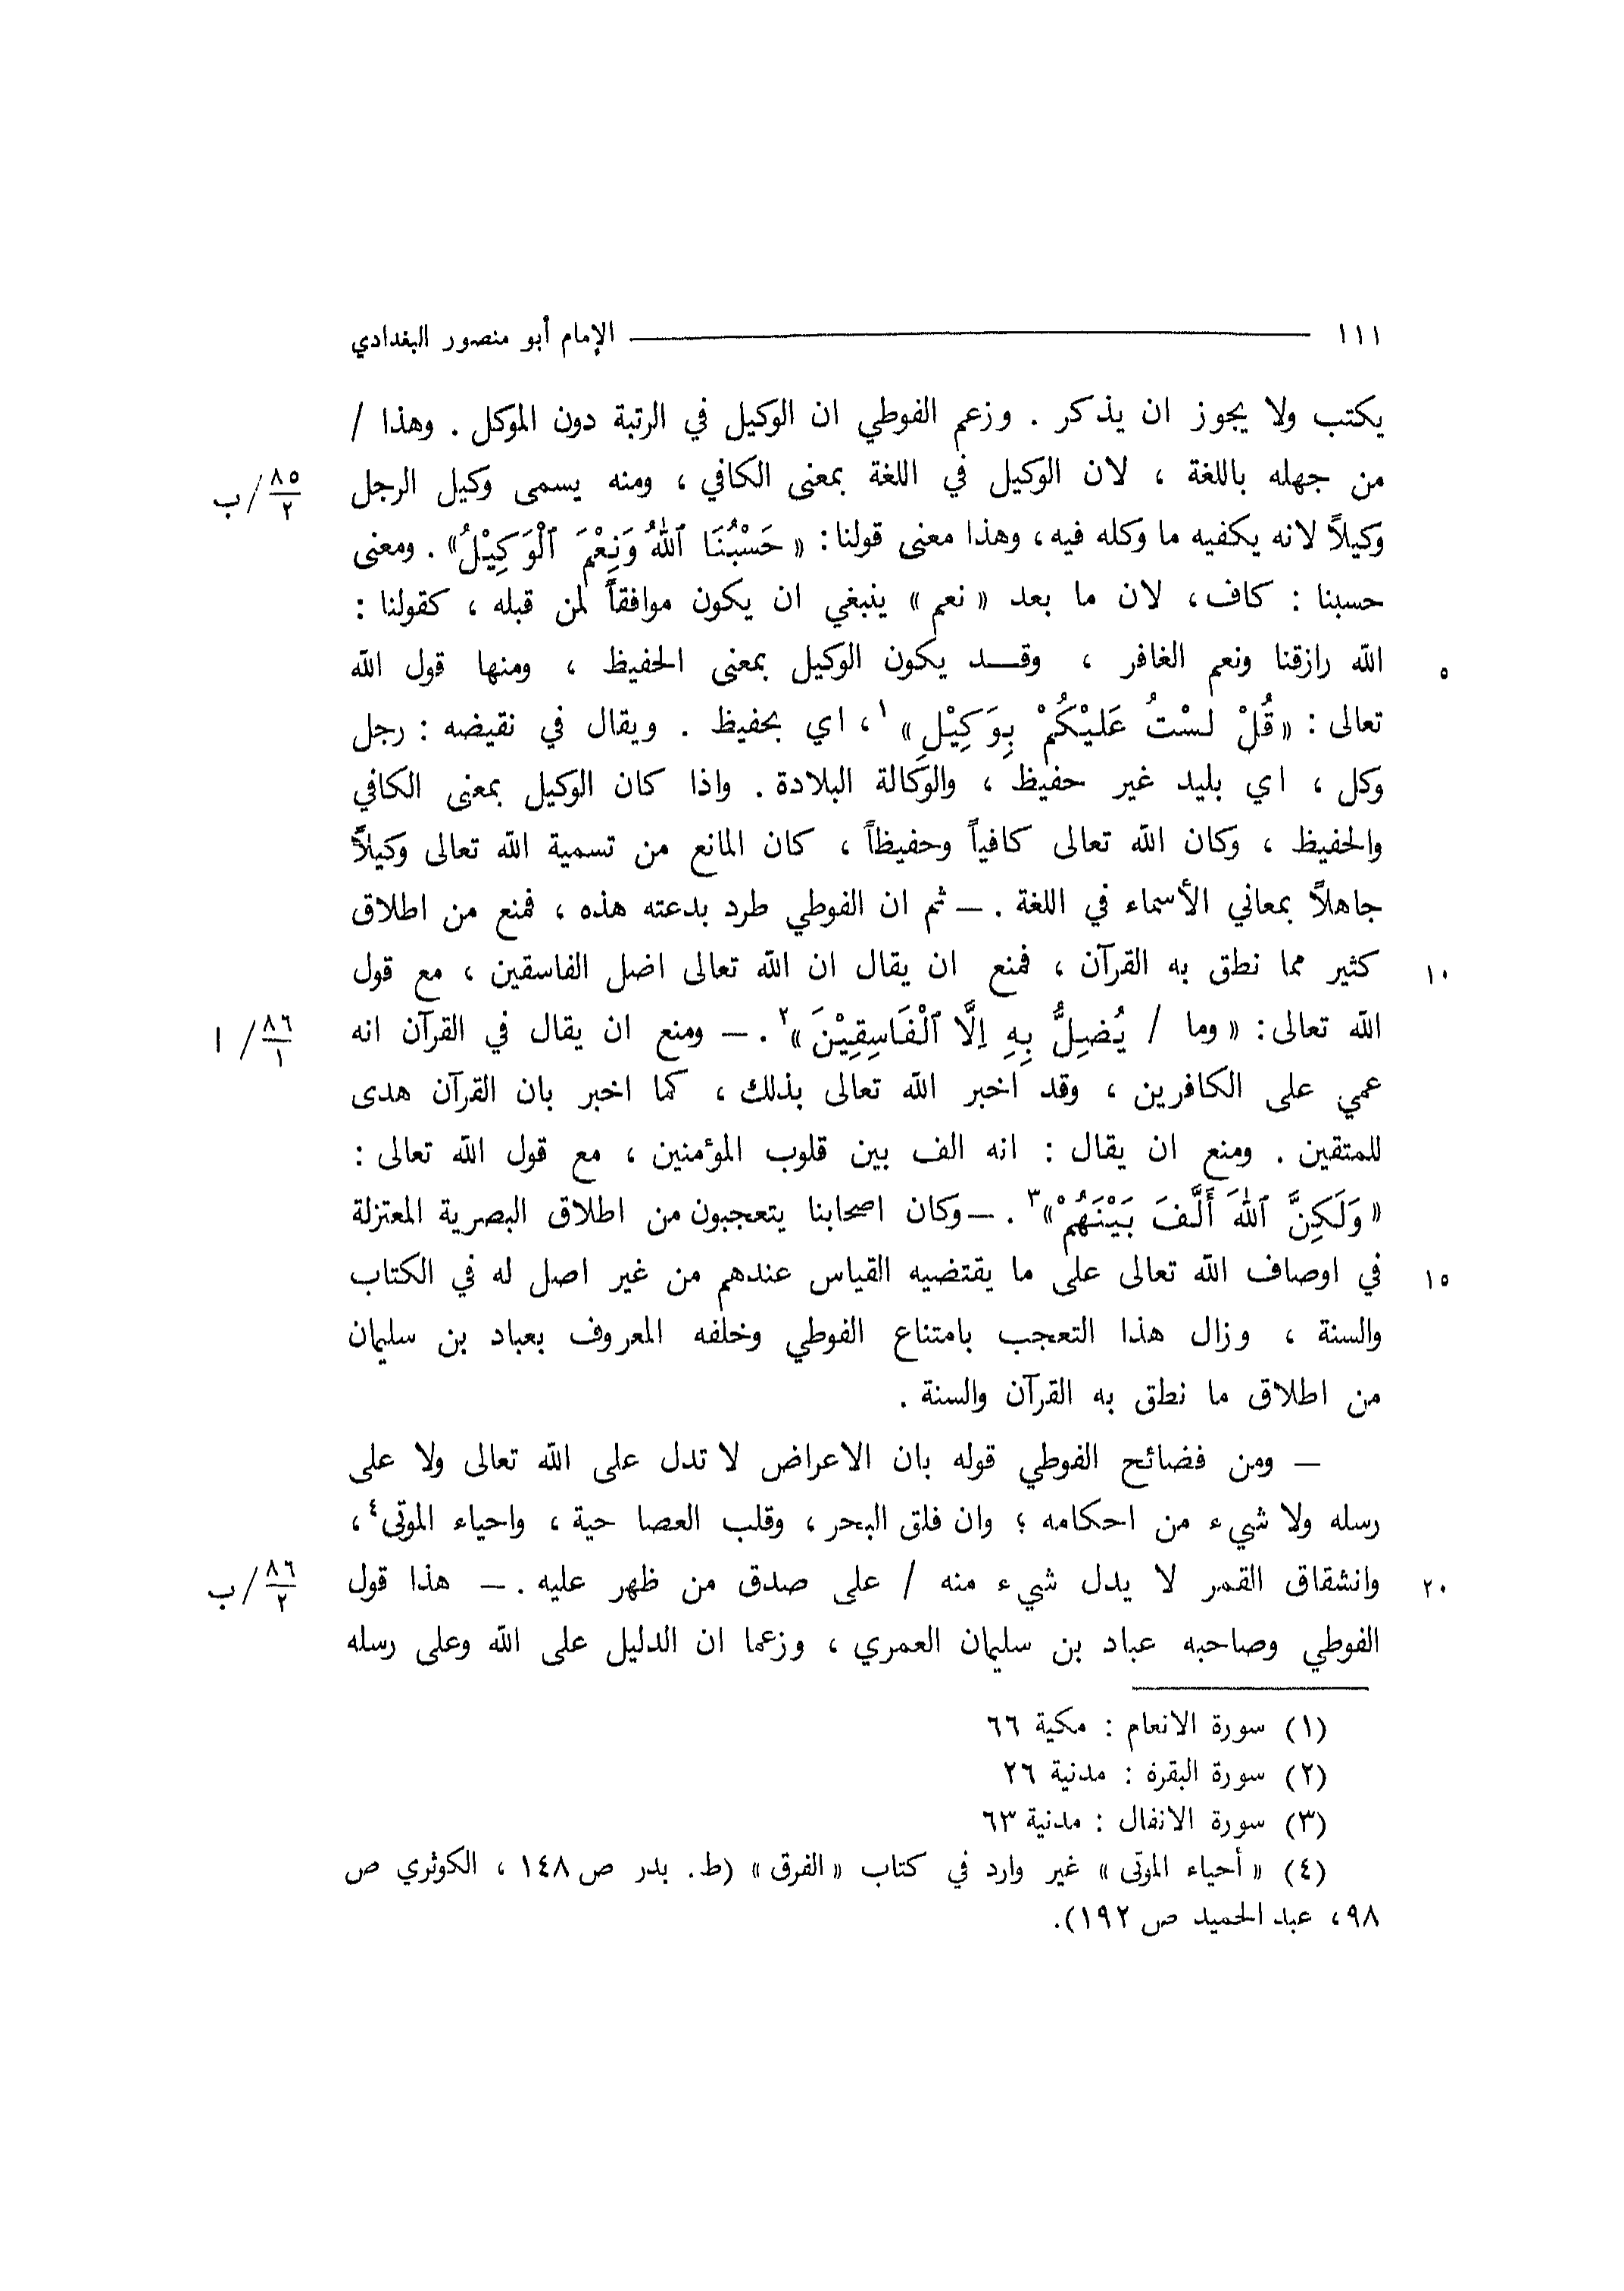 ١١١ الإمام أبو منصور البغدادي
يكتب ولا يجوز ان يذكر . وزعم الفوطي ان الوكيل في الرتبة دون الموكل . وهذا /
من جهله باللغة ، لان الوكيل في اللغة بمعنى الكافي ، ومنه يسمى وكيل الرجل ٨٥/٢ / ب
وكيلاً لانه يكفيه ما وكله فيه، وهذا معنى قولنا: « حَسْبُنَا ٱللهُ وَنِعْمَ ٱلْوَكِيْلُ» . ومعنى
حسبنا : كاف، لان ما بعد « نعم » ينبغي ان يكون موافقاً لمن قبله ، كقولنا :
٥ الله رازقنا ونعم الغافر ، وقـــد يكون الوكيل بمعنى الحفيظ ، ومنها قول الله
تعالى : « قُلْ لسْتُ عَليْكُمْ بِوَكِيْلِ» ١، اي بحفيظ . ويقال في نقيضه : رجل
وكل ، اي بليد غير حفيظ ، والوكالة البلادة . واذا كان الوكيل بمعنى الكافي
والحفيظ ، وكان الله تعالى كافياً وحفيظاً ، كان المانع من تسمية الله تعالى وكيلاً
جاهلاً بمعاني الأسماء في اللغة . — ثم ان الفوطي طرد بدعته هذه ، فمنع من اطلاق
١٠ كثير مما نطق به القرآن ، فمنع ان يقال ان الله تعالى اضل الفاسقين ، مع قول
الله تعالى: « وما / يُضِلُّ بِهِ اِلَّا ٱلْفَاسِقِيْنَ »٢ . — ومنع ان يقال في القرآن انه ٨٦/١ / ا
عمي على الكافرين ، وقد اخبر الله تعالى بذلك ، كما اخبر بان القرآن هدى
للمتقين . ومنع ان يقال : انه الف بين قلوب المؤمنين ، مع قول الله تعالى :
« وَلَكِنَّ ٱللهَ أَلَّفَ بَيْنَهُمْ»٣ . — وكان اصحابنا يتعجبون من اطلاق البصرية المعتزلة
١٥ في اوصاف الله تعالى على ما يقتضيه القياس عندهم من غير اصل له في الكتاب
والسنة ، وزال هذا التعجب بامتناع الفوطي وخلفه المعروف بعباد بن سليمان
من اطلاق ما نطق به القرآن والسنة .
— ومن فضائح الفوطي قوله بان الاعراض لا تدل على الله تعالى ولا على
رسله ولا شيء من احكامه ؛ وان فلق البحر ، وقلب العصا حية ، واحياء الموتى٤،
٢٠ وانشقاق القمر لا يدل شيء منه / على صدق من ظهر عليه . — هذا قول ٨٦/٢ / ب
الفوطي وصاحبه عباد بن سليمان العمري ، وزعما ان الدليل على الله وعلى رسله
(١) سورة الانعام : مكية ٦٦
(٢) سورة البقرة : مدنية ٢٦
(٣) سورة الانفال : مدنية ٦٣
(٤) « أحياء الموتى » غير وارد في كتاب « الفرق » (ط. بدر ص ١٤٨ ، الكوثري ص
٩٨، عبد الحميد ص ١٩٢).